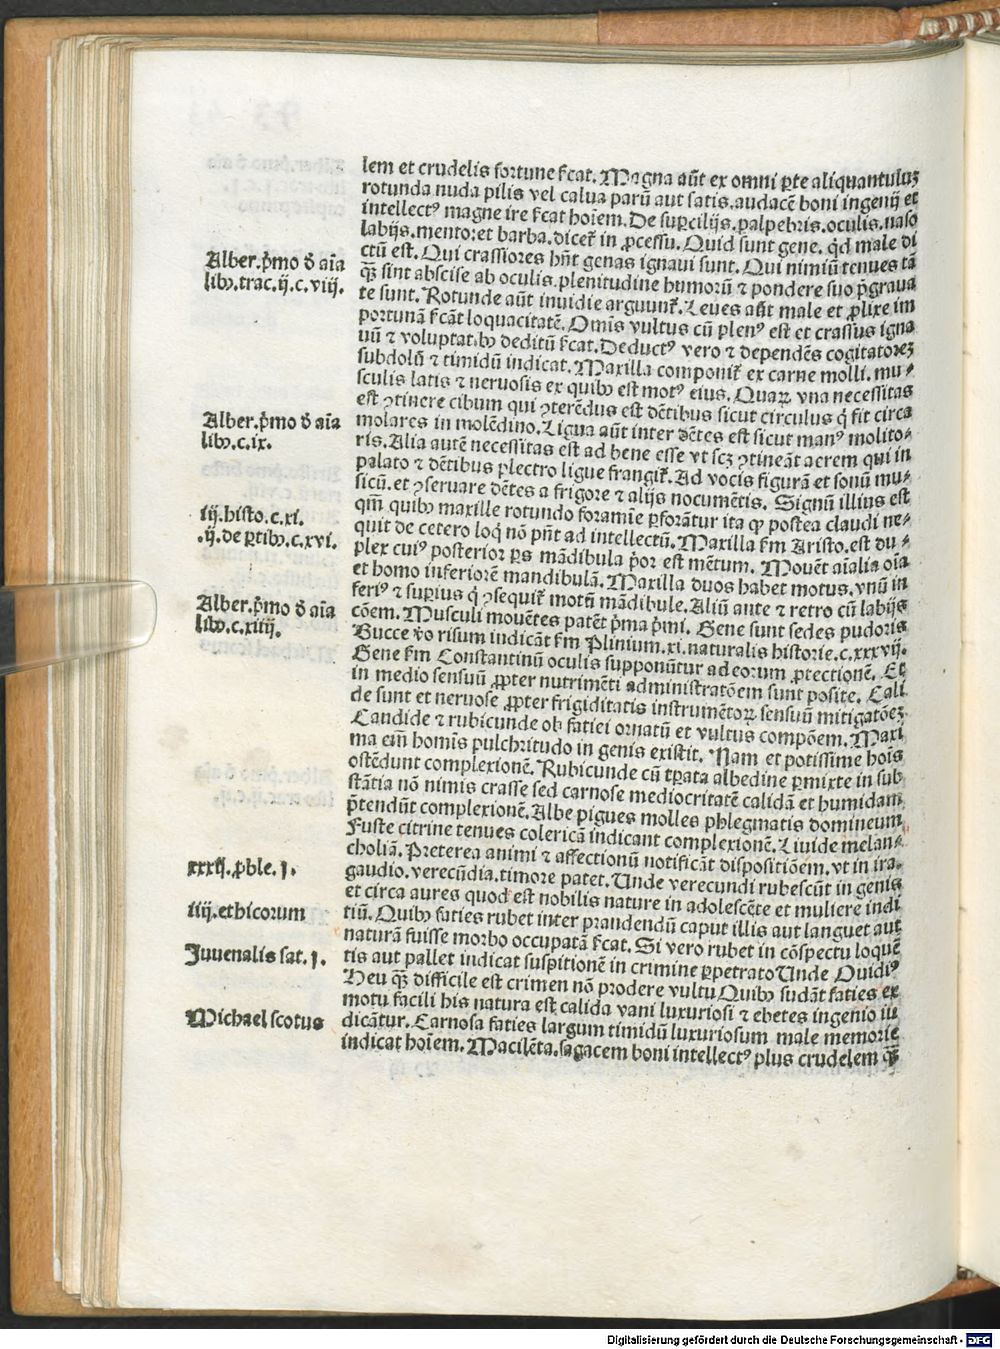 lem et crudelis fortune ſcat. Magna aūt ex omni ꝑte aliquantuluꝫ
rotunda nuda pilis vel calua parū aut satis. audacē boni ingenij et
intellectꝰ magne ire ſcat hoīem. De suꝑcilijs. palpebris. oculis. naso
labijs. mento: et barba. dicet̄ in ꝓcessu. Quid sunt gene. q̇d male di
Alber. p̄mo ð aīa
libꝫ. trac. ij. c. viij.
ctū est. Qui crassiores hn̄t genas ignaui sunt. Qui nimiū tenues tā
qꝫ̄ sint abscise ab oculis. plenitudine humorū ⁊ pondere suo p̄graua
te sunt. Rotunde aūt inuidie arguunt̄. Leues aūt male et ꝓlixe im
portunā ſcāt loquacitatē. Omīs vultus cū plenꝰ est et crassus igna
uū ⁊ voluptatibꝫ deditū ſcat. Deductꝰ vero ⁊ dependēs cogitatoreꝫ
subdolū ⁊ timidū indicat. Maxilla componit̄ ex carne molli. mu⸗
sculis latis ⁊ neruosis ex quibꝫ est motꝰ eius. Quaꝝ vna necessitas
Alber. p̄mo ð aīa
libꝫ. c. ix.
est ꝯtinere cibum qui ꝯterēdus est dētibus sicut circulus q̇ fit circa
molares in molēdino. Ligua aūt inter dētes est sicut manꝰ molito⸗
ris. Alia autē necessitas est ad bene esse vt scꝫ ꝯtineāt aerem qui in
palato ⁊ dētibus plectro ligue frangit̄. Ad vocis figurā et sonū mu⸗
sicū. et ꝯseruare dētes a frigore ⁊ alijs nocumētis. Signū illius est
ij. histo. c. xi.
.ij. de ꝑtibꝫ. c. xvi.
qm̄ quibꝫ maxille rotundo foramīe ꝑforātur ita ꝙ postea claudi ne⸗
quit de cetero loq̇ nō pn̄t ad intellectū. Maxilla ẜm Aristo. est du⸗
plex cuiꝰ posterior ꝑs mādibula p̄or est mētum. Mouēt aīalia oīa
et homo inferiorē mandibulā. Maxilla duos habet motus. vnū in
Alber. p̄mo ð aīa
libꝫ. c. xiiij.
feriꝰ ⁊ suꝑius q̇ ꝯsequit̄ motū mādibule. Aliū ante ⁊ retro cū labijs
cōem. Musculi mouētes patēt p̄ma p̄mi. Gene sunt sedes pudoris
Bucce v̄o risum indicāt ẜm Plinium. xi. naturalis historie. c. xxxvij.
Gene ẜm Constantinū oculis supponūtur ad eorum ꝓtectionē. Et
in medio sensuū ꝓpter nutrimēti administratōem sunt posite. Cali
de sunt et neruose ꝓpter frigiditatis instrumētoꝝ sensuū mitigatōeꝫ
Candide ⁊ rubicunde ob fatiei ornatū et vultus compōem. Maxi
ma eīm homīs pulchritudo in genis existit. Nam et potissime hoīs
ostēdunt complexionē. Rubicunde cū tꝑata albedine ꝑmixte in sub
stātia nō nimis crasse sed carnose mediocritatē calidā et humidam
p̄tendūt complexionē. Albe pigues molles phlegmatis domineum
Fuste citrine tenues colericā indicant complexionē. Liuide melan⸗
xxxij. ꝓble. 1.
choliā. Preterea animi ⁊ affectionū notificāt dispositiōem. vt in ira.
gaudio. verecūdia. timore patet. Unde verecundi rubescūt in genis
iiij. ethicorum
et circa aures quod est nobilis nature in adolescēte et muliere indi
tiū. Quibꝫ faties rubet inter prandendū caput illis aut languet aut
Juuenalis sat. 1.
naturā fuisse morbo occupatā ſcat. Si vero rubet in cōspectu loquē
tis aut pallet indicat suspitionē in crimine ꝑpetrato Unde Ouidiꝰ
Heu qꝫ̄ difficile est crimen nō prodere vultu Quibꝫ sudāt faties ex
Michael scotus
motu facili his natura est calida vani luxuriosi ⁊ ebetes ingenio iu
dicātur. Carnosa faties largum timidū luxuriosum male memorie
indicat hoīem. Macilēta. sagacem boni intellectꝰ plus crudelem qꝫ̄
Digitalisierung gefördert durch die Deutsche Forschungsgemeinschaft - DFG